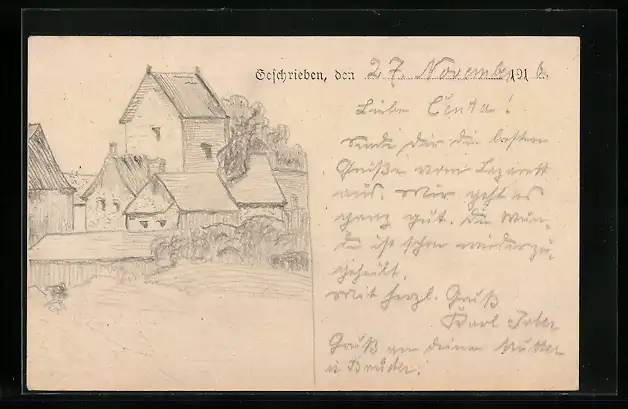 Geschrieben, den 27. November 1916.
Liebe Centa!
Sende dir die besten
Grüße vom Lazarett
aus. Mir geht es
ganz gut. Die Wun-
de ist schon wieder zu-
geheilt.
Mit herzl. Gruß
Karl
Gruß an deine Mutter
u Bruder.